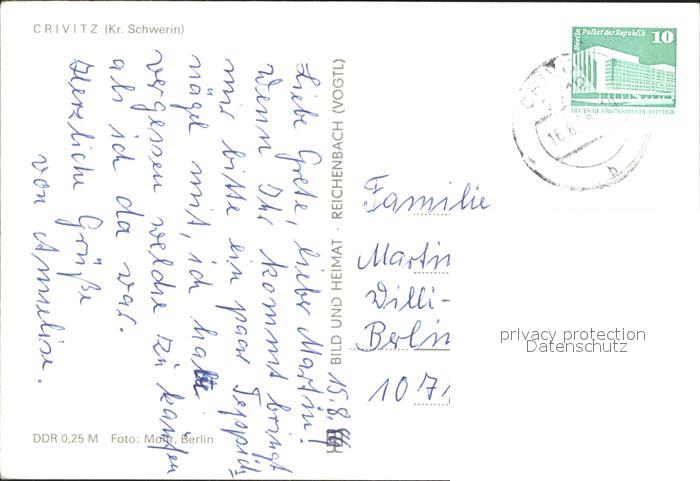 CRIVITZ (Kr. Schwerin)
Liebe Grete, lieber Martin!
Wenn Ihr kommt bringt
mir bitte ein paar Teppich
nägel mit, ich hatte
vergessen welche zu kaufen
als ich da war.
Herzliche Grüße
von Annelise.
15.8.
BILD UND HEIMAT · REICHENBACH (VOGTL)
DDR 0,25 M Foto: Mohr, Berlin
Berlin
Palast der Republik
10
DEUTSCHE DEMOKRATISCHE REPUBLIK
16.8.
b
Familie
Martin
Willi-
Berlin
1071
privacy protection
Datenschutz